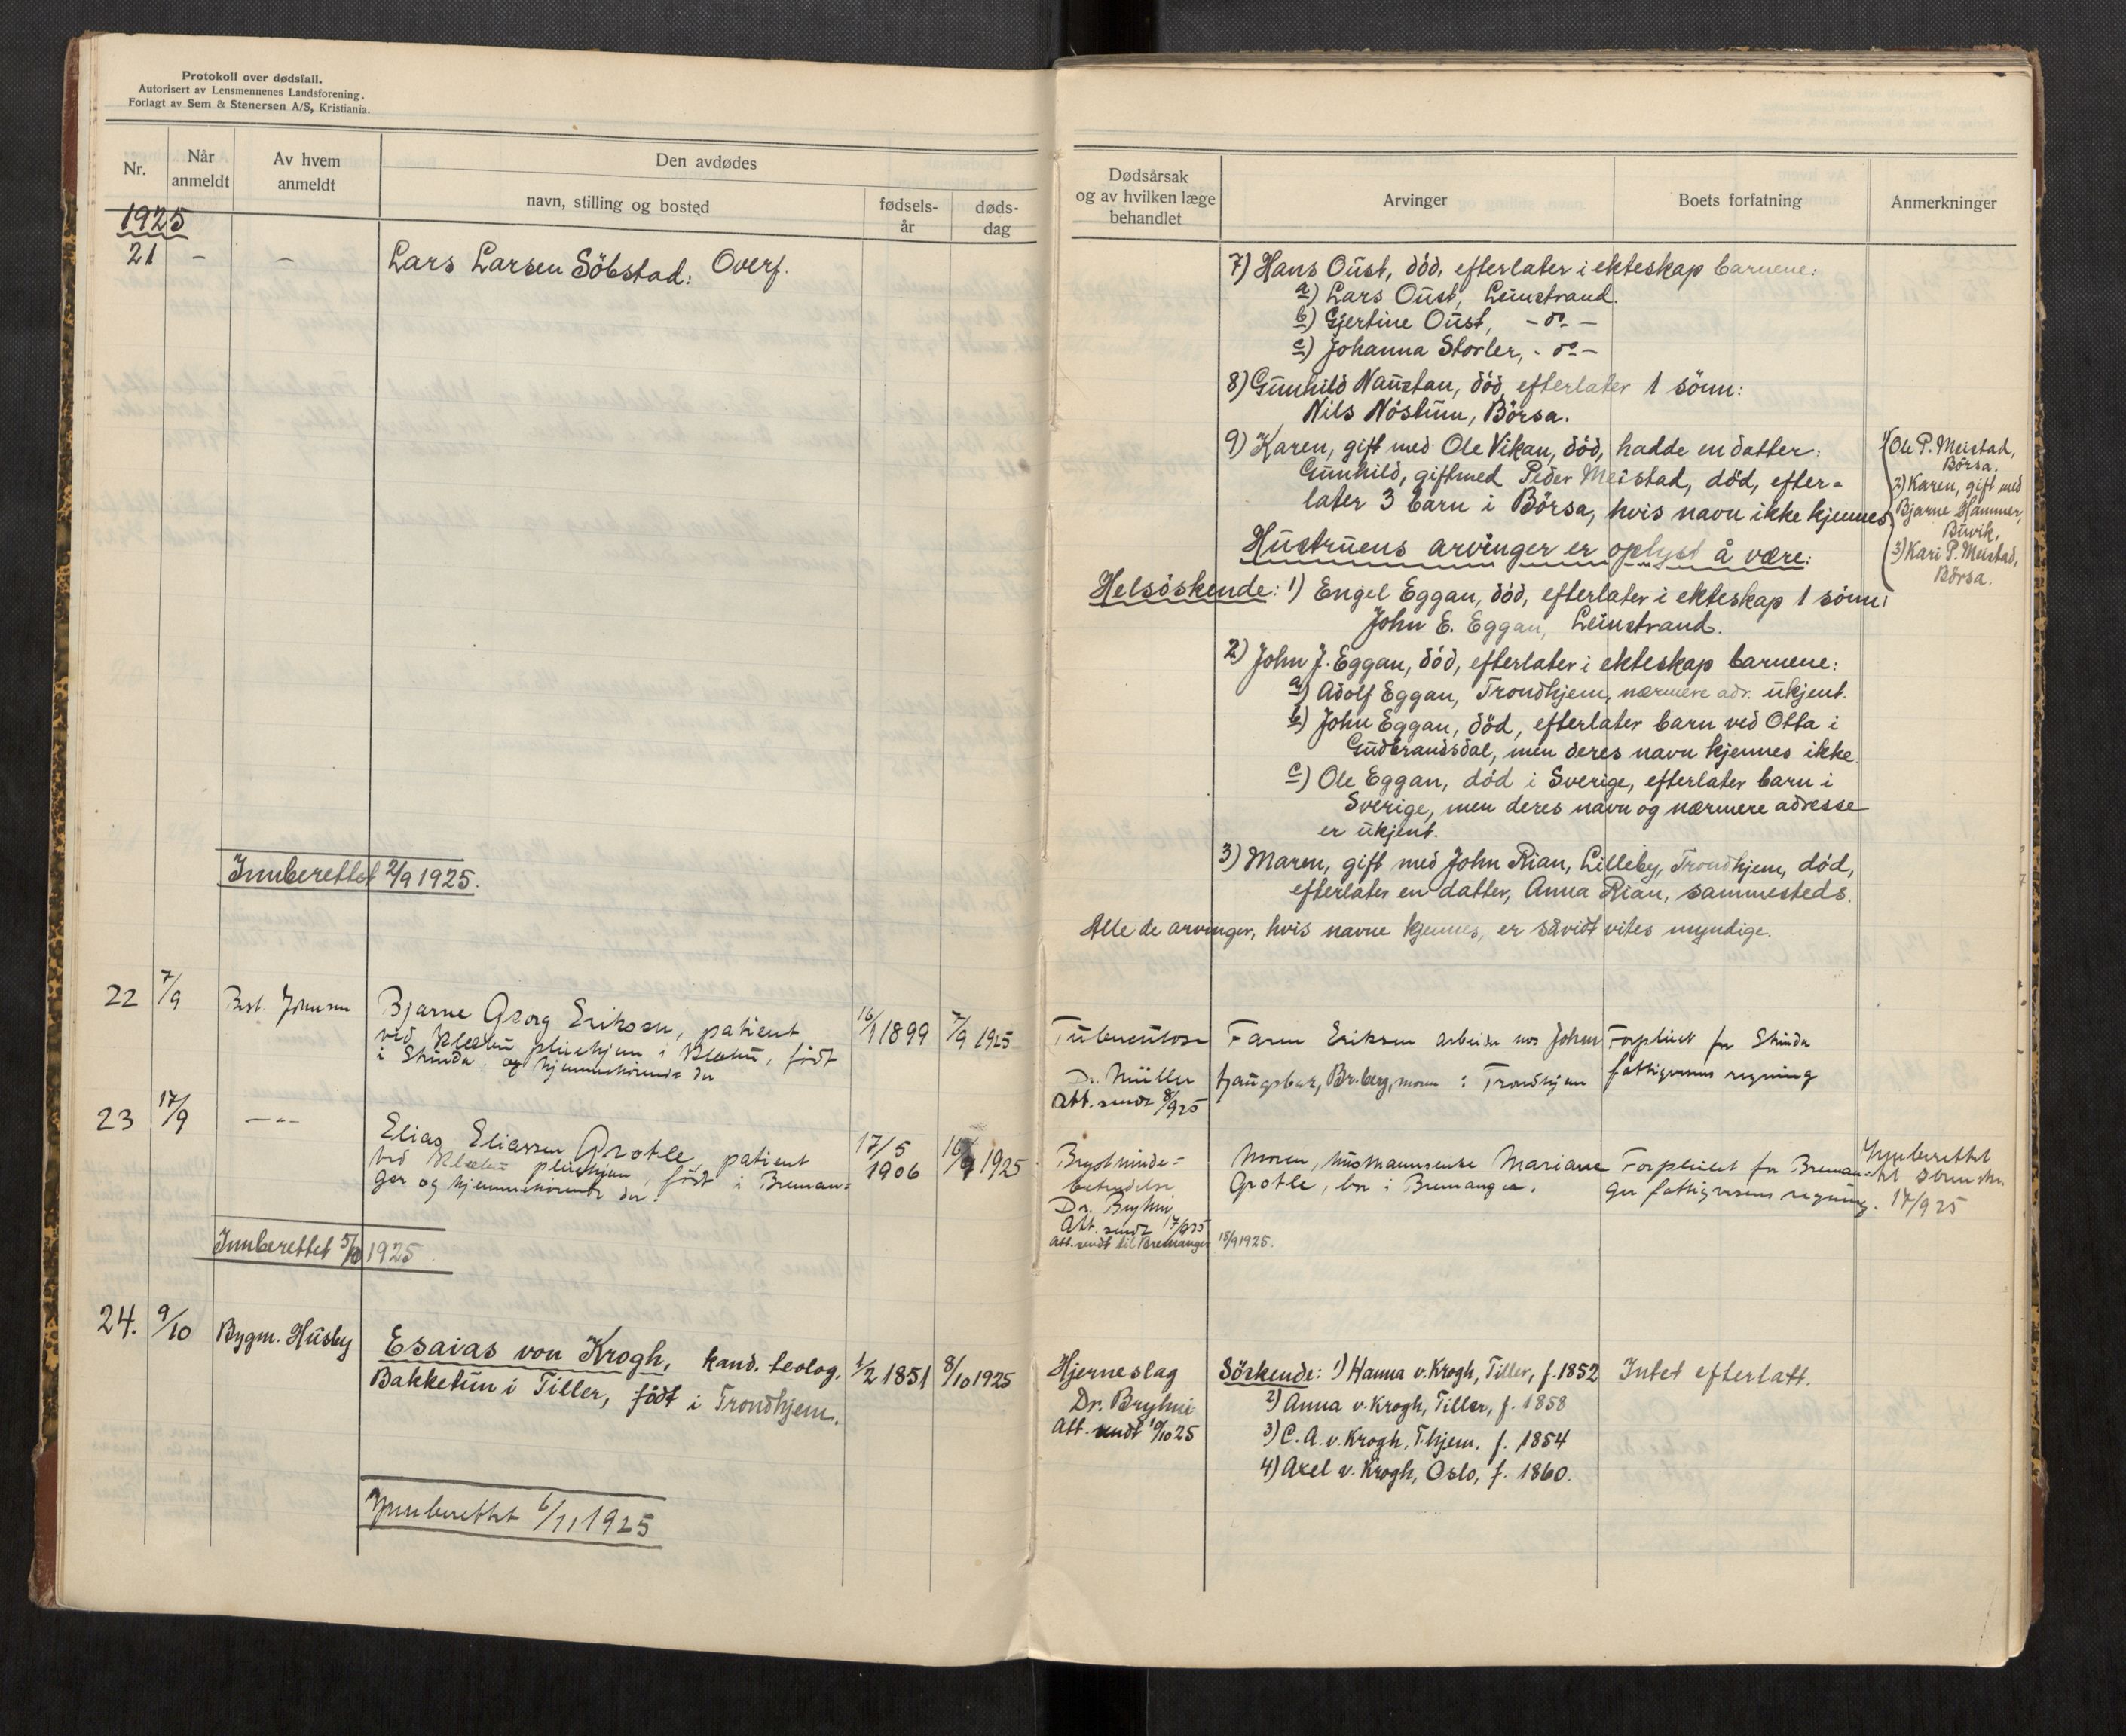 Protokoll over dødsfall.
Autorisert av Lensmennenes Landsforening.
Forlagt av Sem & Stenersen A/S, Kristiania.
Nr.
Når anmeldt
Av hvem anmeldt
Den avdødes
navn, stilling og bosted
fødsels-år
døds-dag
1925
21 – – Lars Larsen Söbstad: Overf.
Innberettet 2/9 1925.
22 7/9 Best. Johnsen Bjarne Georg Eriksen, patient 16/1 1899 7/9 1925
ved Klæbu pleiehjem i Klæbu, født
i Strinda og hjemmehörende der
23 17/9 –"– Elias Eliassen Grotle, patient 17/5 1906 16/9 1925
ved Klæbu pleiehjem, født i Breman=
ger og hjemmehörende der.
Innberettet 5/10 1925.
24. 9/10 Bygm. Hüsby Esaias von Krogh, kand. teolog. 1/2 1851 8/10 1925
Bakketün i Tiller, født i Trondhjem.
Innberettet 6/11 1925
Dødsårsak
og av hvilken læge
behandlet
Arvinger
Boets forfatning
Anmerkninger
7) Hans Oüst, död, efterlater i ekteskap barnene:
a) Lars Oüst, Leinstrand.
b) Gjertine Oüst, – do –
c) Johanna Storler, – do –
8) Günhild Naüstan, död, efterlater 1 sönn:
Nils Nöstüm, Börsa.
9) Karen, gift med Ole Vikan, död, hadde en datter:
Günhild, gift med Peder Meistad, död, efter=
later 3 barn i Börsa, hvis navn ikke kjennes
1) Ole P. Meistad,
Börsa.
2) Karen, gift med
Bjarne Hammer,
Büvik,
3) Kari P. Meistad,
Börsa.
Hüstrüens arvinger er oplyst å være:
Helsöskende: 1) Engel Eggan, död, efterlater i ekteskap 1 sönn:
John E. Eggan, Leinstrand.
2) John J. Eggan, död, efterlater i ekteskap barnene:
a) Adolf Eggan, Trondhjem, nærmere adr. ükjent.
b) John Eggan, död, efterlater barn ved Otta i
Güdbrandsdal, men deres navn kjennes ikke.
c) Ole Eggan, död i Sverige, efterlater barn i
Sverige, men deres navn og nærmere adresse
er ükjent.
3) Maren, gift med John Rian, Lilleby, Trondhjem, död,
efterlater en datter, Anna Rian, sammesteds.
Alle de arvinger, hvis navne kjennes, er såvidt vites myndige.
Tüberculose Faren Eriksen arbeider hos Johan Forpleiet for Strinda
Dr. Müller Br.berg, moren i Trondhjem fattigvesens regning
Att. sendt 8/9 25
Brysthinde= Moren, hüsmannsenke Mariane Forpleiet for Breman= Innberettet
betendelse Grotle, bor i Bremanger. ger fattigvesens regning. til
Dr. Bryhni 17/9 25
Att. sendt 17/9 25
Att. sendt til Bremanger 18/9 1925.
Hjerneslag Söskende: 1) Hanna v. Krogh, Tiller, f. 1852 Intet efterlatt.
Dr. Bryhni 2) Anna v. Krogh, Tiller, f. 1858
Att. sendt 10/10 25 3) C. A. v. Krogh, T.hjem. f. 1854
4) Axel v. Krogh, Oslo, f. 1860.